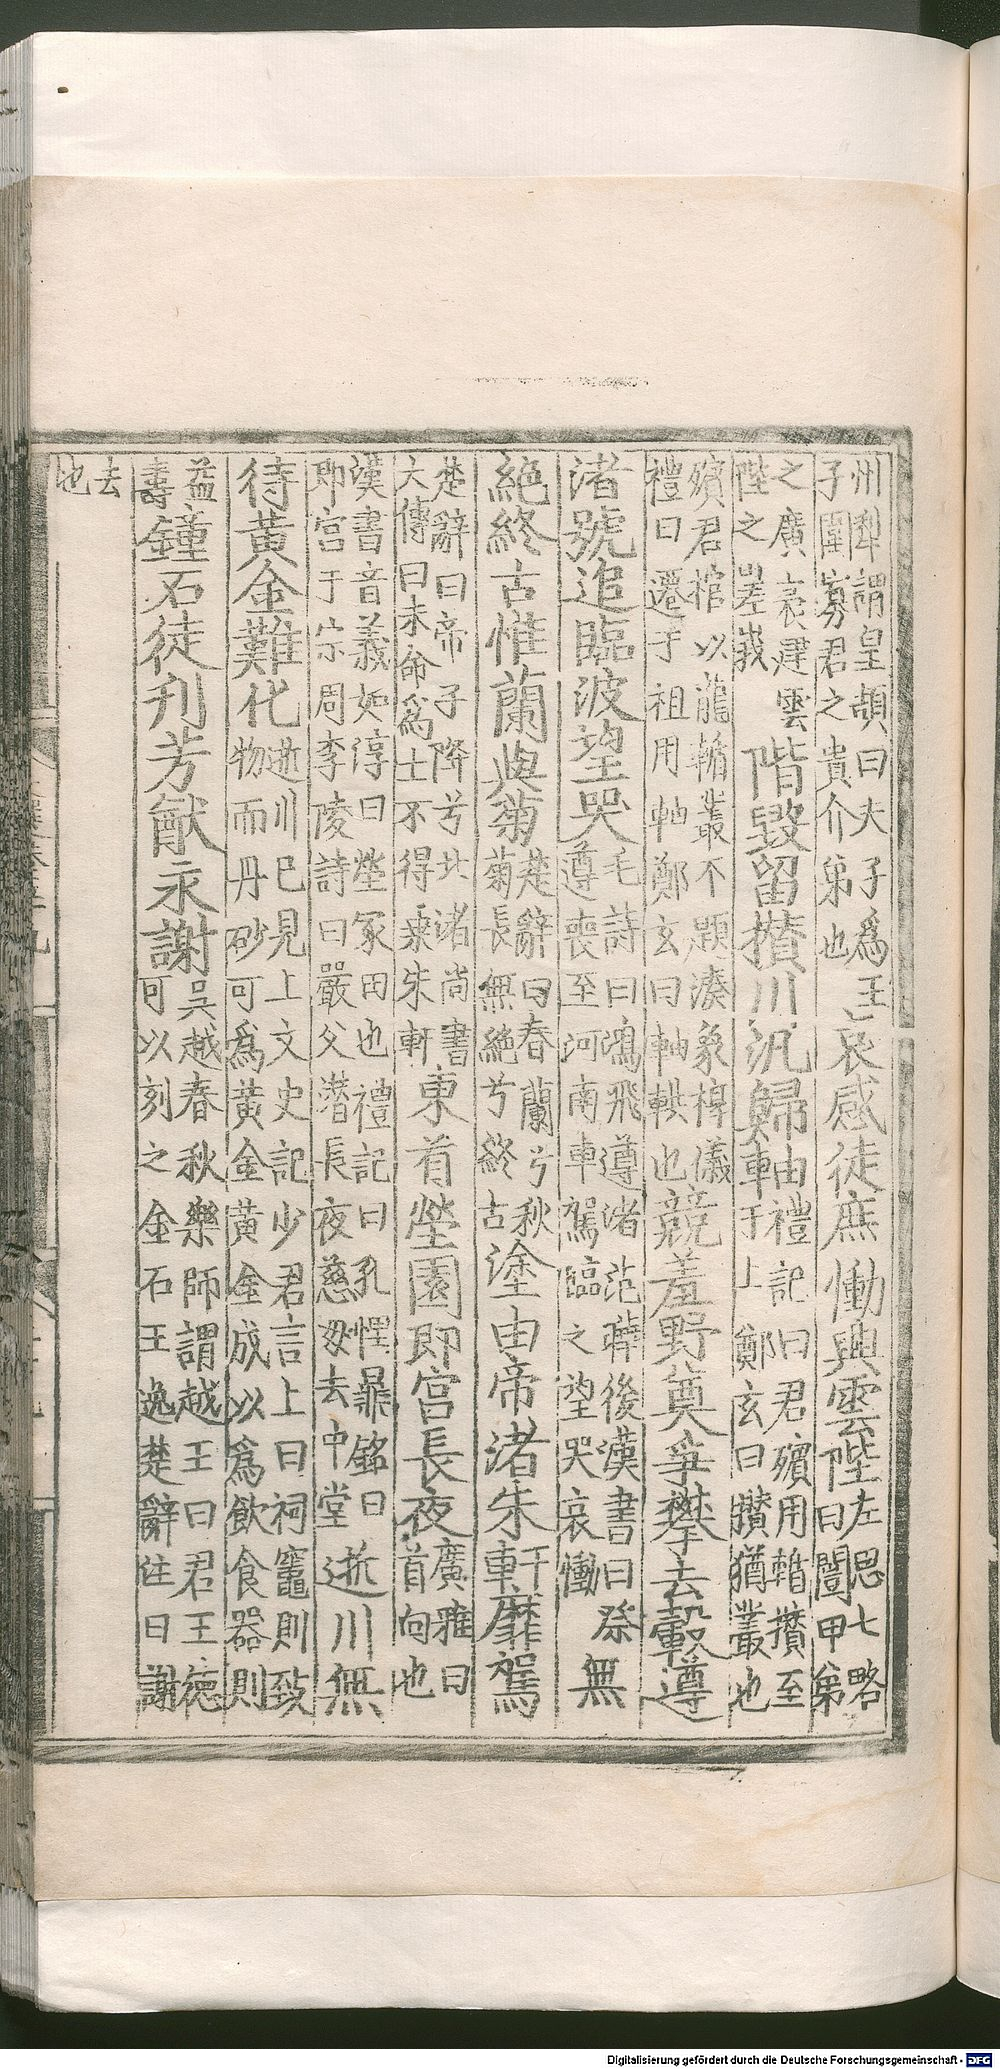 州犁謂皇頡曰夫子爲王子圍寡君之貴介弟也哀感徒庶慟興雲陛左思七略曰闓甲第
之廣袤建雲陛之嵳峩階毀留攢川汎歸軸禮記曰君殯用輴攢至于上鄭玄曰攢猶叢也
殯君棺以龍輴叢不題湊象椁儀禮曰遷于祖用軸鄭玄曰軸輁也競羞野奠爭攀去轂遵
渚號追臨波望哭毛詩曰鴻飛遵渚范曄後漢書曰祭遵喪至河南車駕臨之望哭哀慟無
絕終古惟蘭與菊楚辭曰春蘭兮秋菊長無絕兮終古塗由帝渚朱軒靡駕
楚辭曰帝子降兮北渚尚書大傳曰未命爲士不得乘朱軒東首塋園即宮長夜廣雅曰首向也
漢書音義如淳曰塋冢田也禮記曰孔悝鼎銘曰即宮于宗周李陵詩曰嚴父潛長夜慈母去中堂逝川無
待黃金難化逝川已見上文史記少君言上曰祠竈則致物而丹砂可爲黃金黃金成以爲飲食器則
益壽鐘石徒刊芳猷永謝吳越春秋樂師謂越王曰君王德可以刻之金石王逸楚辭注曰謝
去也
Digitalisierung gefördert durch die Deutsche Forschungsgemeinschaft - DFG